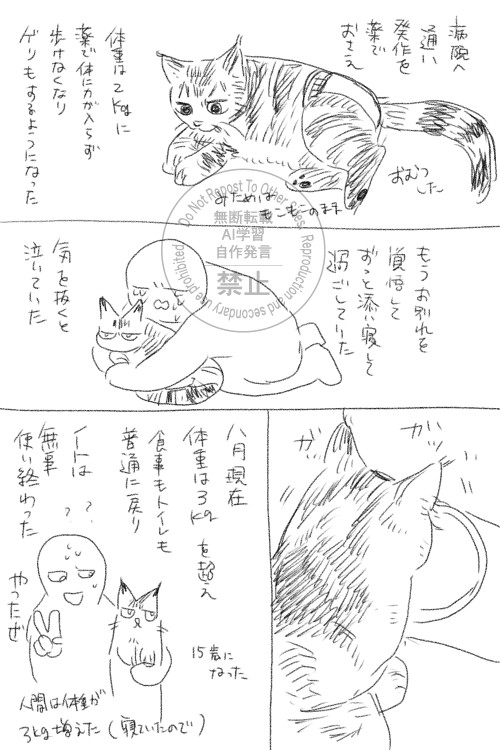 病院へ
通い
発作を
薬で
おさえ
体重は2kgに
薬で体に力が入らず
歩けなくなり
ゲリもするようになった
おむつ
した
みためは
モンモンのまま
Do Not Repost To Other Sites. Reproduction and secondary use Prohibited.
無断転載
AI学習
自作発言
禁止
もうお別れを
覚悟して
ずっと添い寝して
過ごしていた
気を抜くと
泣いていた
ガ
ガ
八月現在
体重は3kgを超え
食事もトイレも
普通に戻り
イトは
無事
使い終わった
？？
やったぜ
15歳に
なった
人間は体重が
3kg増えた(寝ていたので)